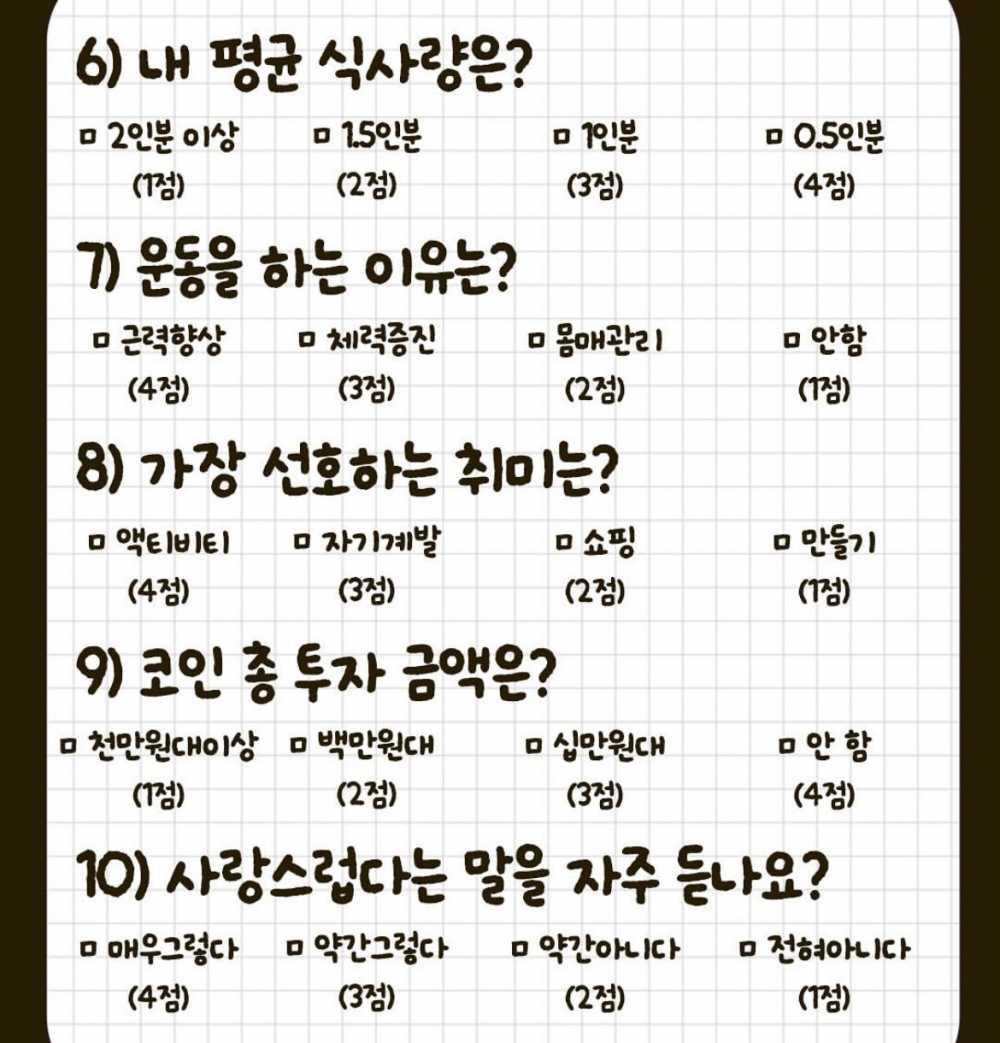 6) 내 평균 식사량은?
□ 2인분 이상 □ 1.5인분 □ 1인분 □ 0.5인분
(1점) (2점) (3점) (4점)
7) 운동을 하는 이유는?
□ 근력향상 □ 체력증진 □ 몸매관리 □ 안함
(4점) (3점) (2점) (1점)
8) 가장 선호하는 취미는?
□ 액티비티 □ 자기계발 □ 쇼핑 □ 만들기
(4점) (3점) (2점) (1점)
9) 코인 총 투자 금액은?
□ 천만원대이상 □ 백만원대 □ 십만원대 □ 안 함
(1점) (2점) (3점) (4점)
10) 사랑스럽다는 말을 자주 듣나요?
□ 매우그렇다 □ 약간그렇다 □ 약간아니다 □ 전혀아니다
(4점) (3점) (2점) (1점)